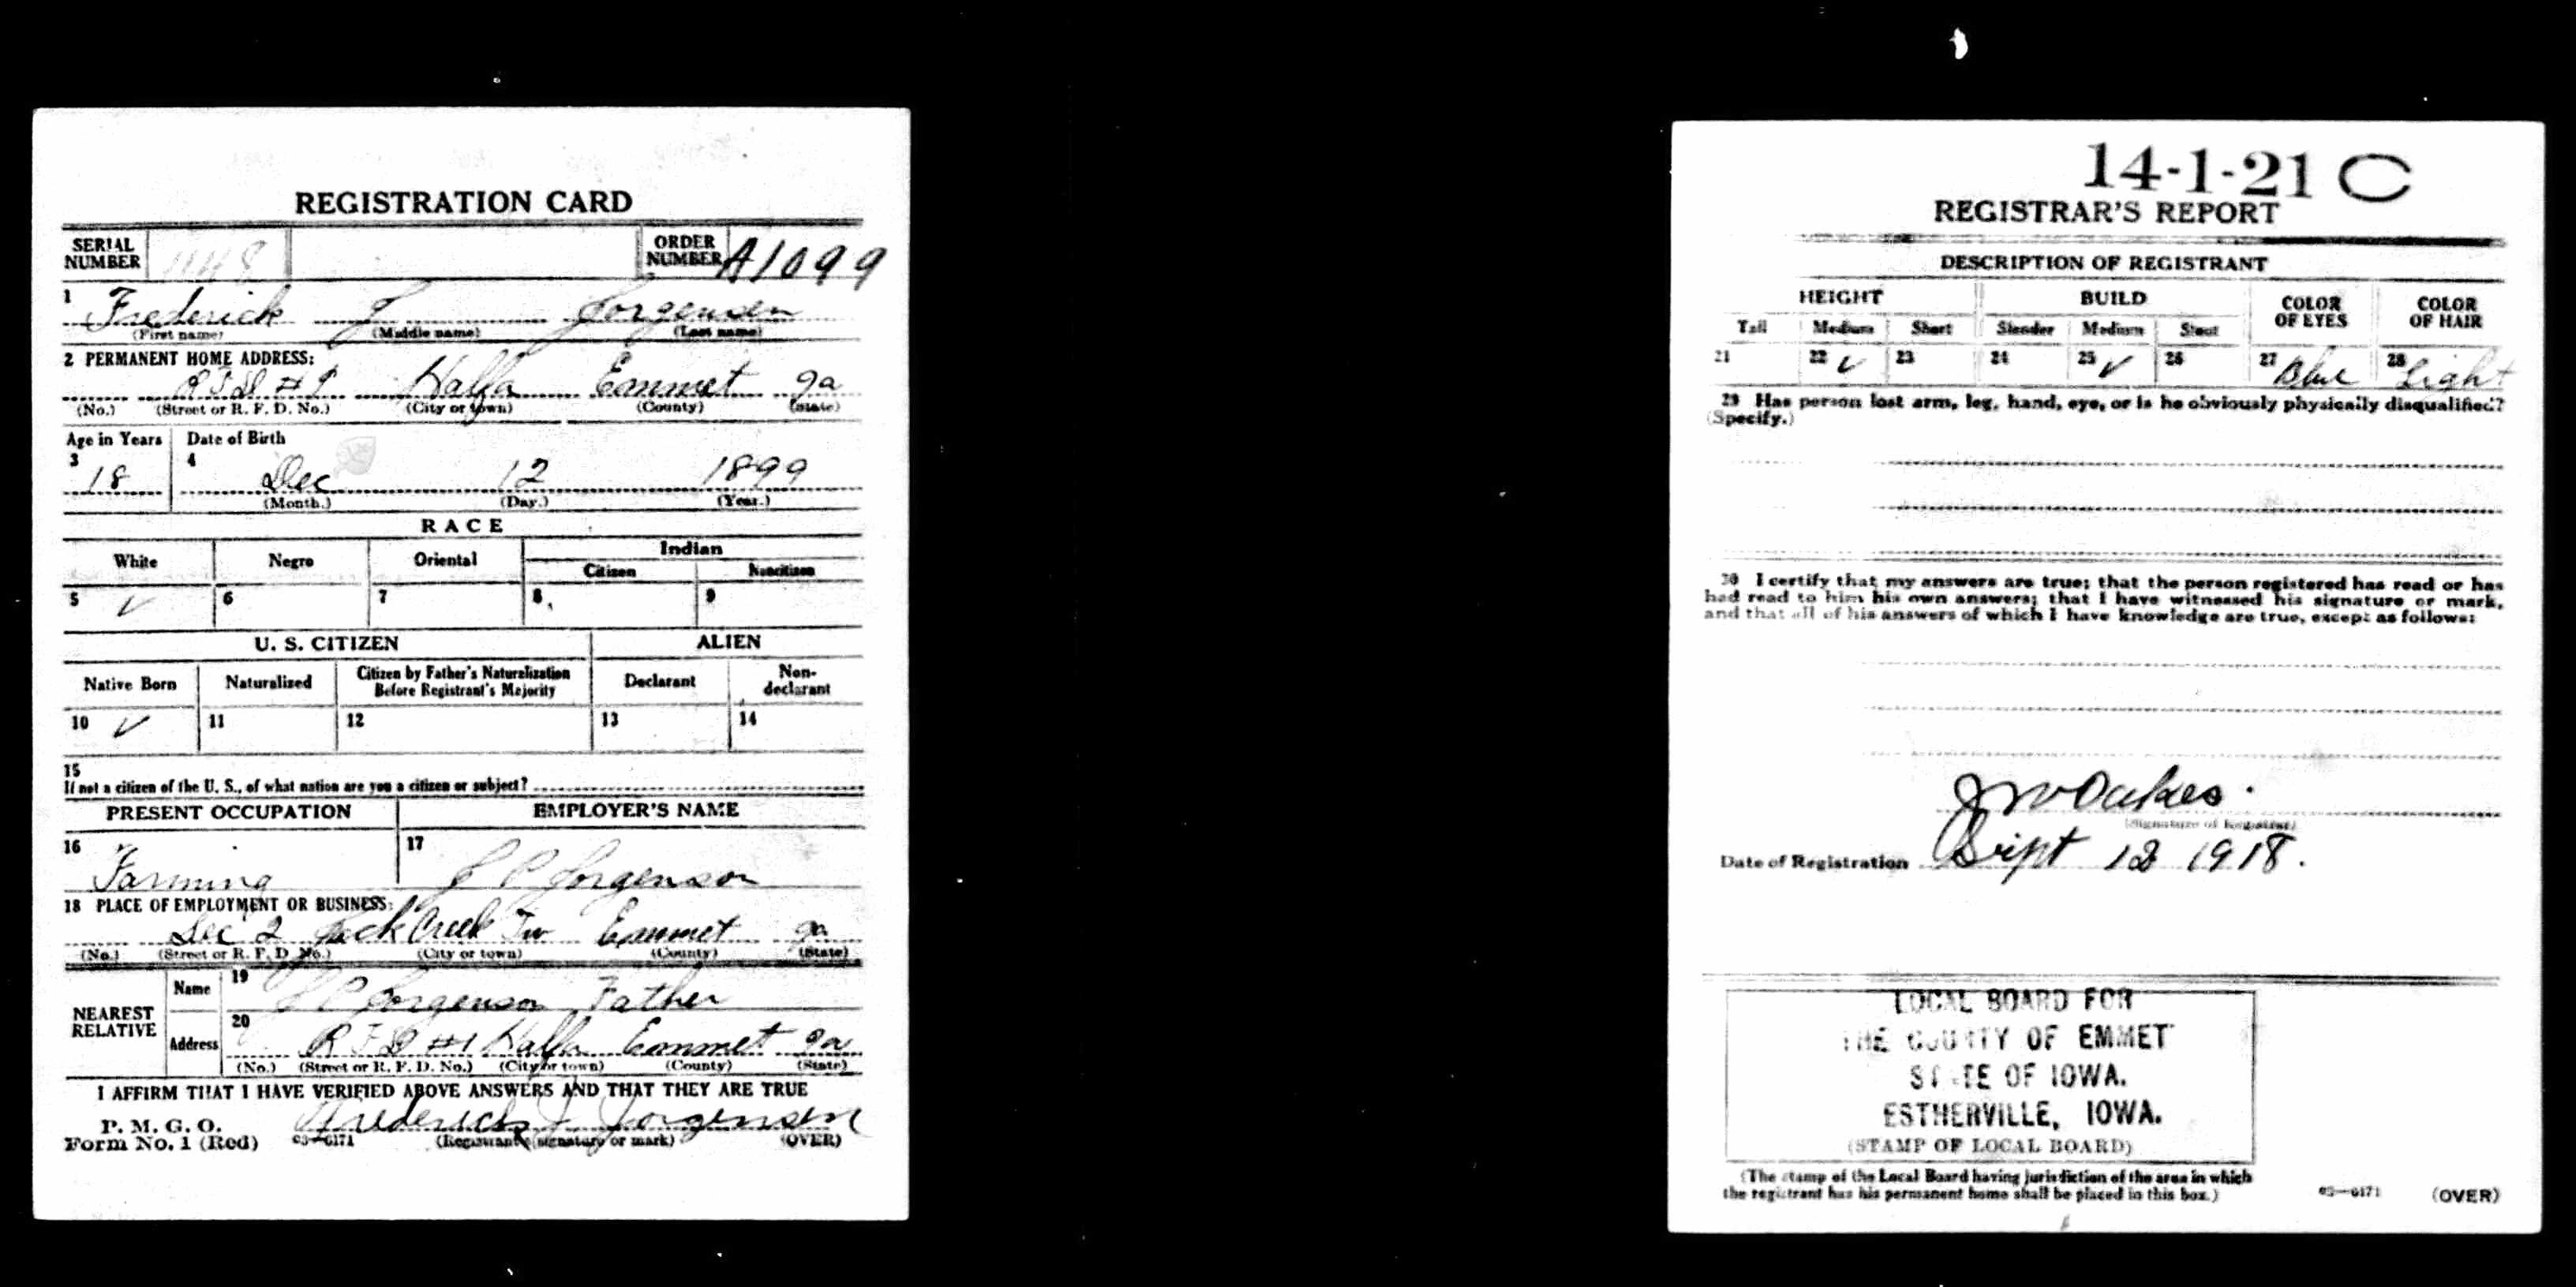 REGISTRATION CARD
SERIAL NUMBER 1148 ORDER NUMBER A1099
1 Frederick J Jorgensen
(First name) (Middle name) (Last name)
2 PERMANENT HOME ADDRESS:
R F D #1 Halfa Emmet Ia
(No.) (Street or R. F. D. No.) (City or town) (County) (State)
Age in Years Date of Birth
3 18 4 Dec 12 1899
(Month.) (Day.) (Year.)
RACE
White Negro Oriental Indian
Citizen Noncitizen
5 ✓ 6 7 8 9
U. S. CITIZEN ALIEN
Native Born Naturalized Citizen by Father's Naturalization Before Registrant's Majority Declarant Non-declarant
10 ✓ 11 12 13 14
15
If not a citizen of the U. S., of what nation are you a citizen or subject?
PRESENT OCCUPATION EMPLOYER'S NAME
16 Farming 17 J P Jorgenson
18 PLACE OF EMPLOYMENT OR BUSINESS:
Sec 2 Jack Creek Tw Emmet Ia
(No.) (Street or R. F. D. No.) (City or town) (County) (State)
NEAREST RELATIVE
Name 19 J P Jorgenson Father
Address 20 R F D #1 Halfa Emmet Ia
(No.) (Street or R. F. D. No.) (City or town) (County) (State)
I AFFIRM THAT I HAVE VERIFIED ABOVE ANSWERS AND THAT THEY ARE TRUE
P. M. G. O.
Form No. 1 (Red) 03—6171 Frederick J Jorgensen
(Registrant's signature or mark) (OVER)
14-1-21 C
REGISTRAR'S REPORT
DESCRIPTION OF REGISTRANT
HEIGHT BUILD COLOR OF EYES COLOR OF HAIR
Tall Medium Short Slender Medium Stout
21 22 ✓ 23 24 25 ✓ 26 27 Blue 28 Light
29 Has person lost arm, leg, hand, eye, or is he obviously physically disqualified?
(Specify.)
30 I certify that my answers are true; that the person registered has read or has
had read to him his own answers; that I have witnessed his signature or mark,
and that all of his answers of which I have knowledge are true, except as follows:
J W Oakes.
(Signature of Registrar)
Date of Registration Sept 12 1918.
LOCAL BOARD FOR
THE COUNTY OF EMMET
STATE OF IOWA.
ESTHERVILLE, IOWA.
(STAMP OF LOCAL BOARD)
(The stamp of the Local Board having jurisdiction of the area in which
the registrant has his permanent home shall be placed in this box.)
03—6171 (OVER)